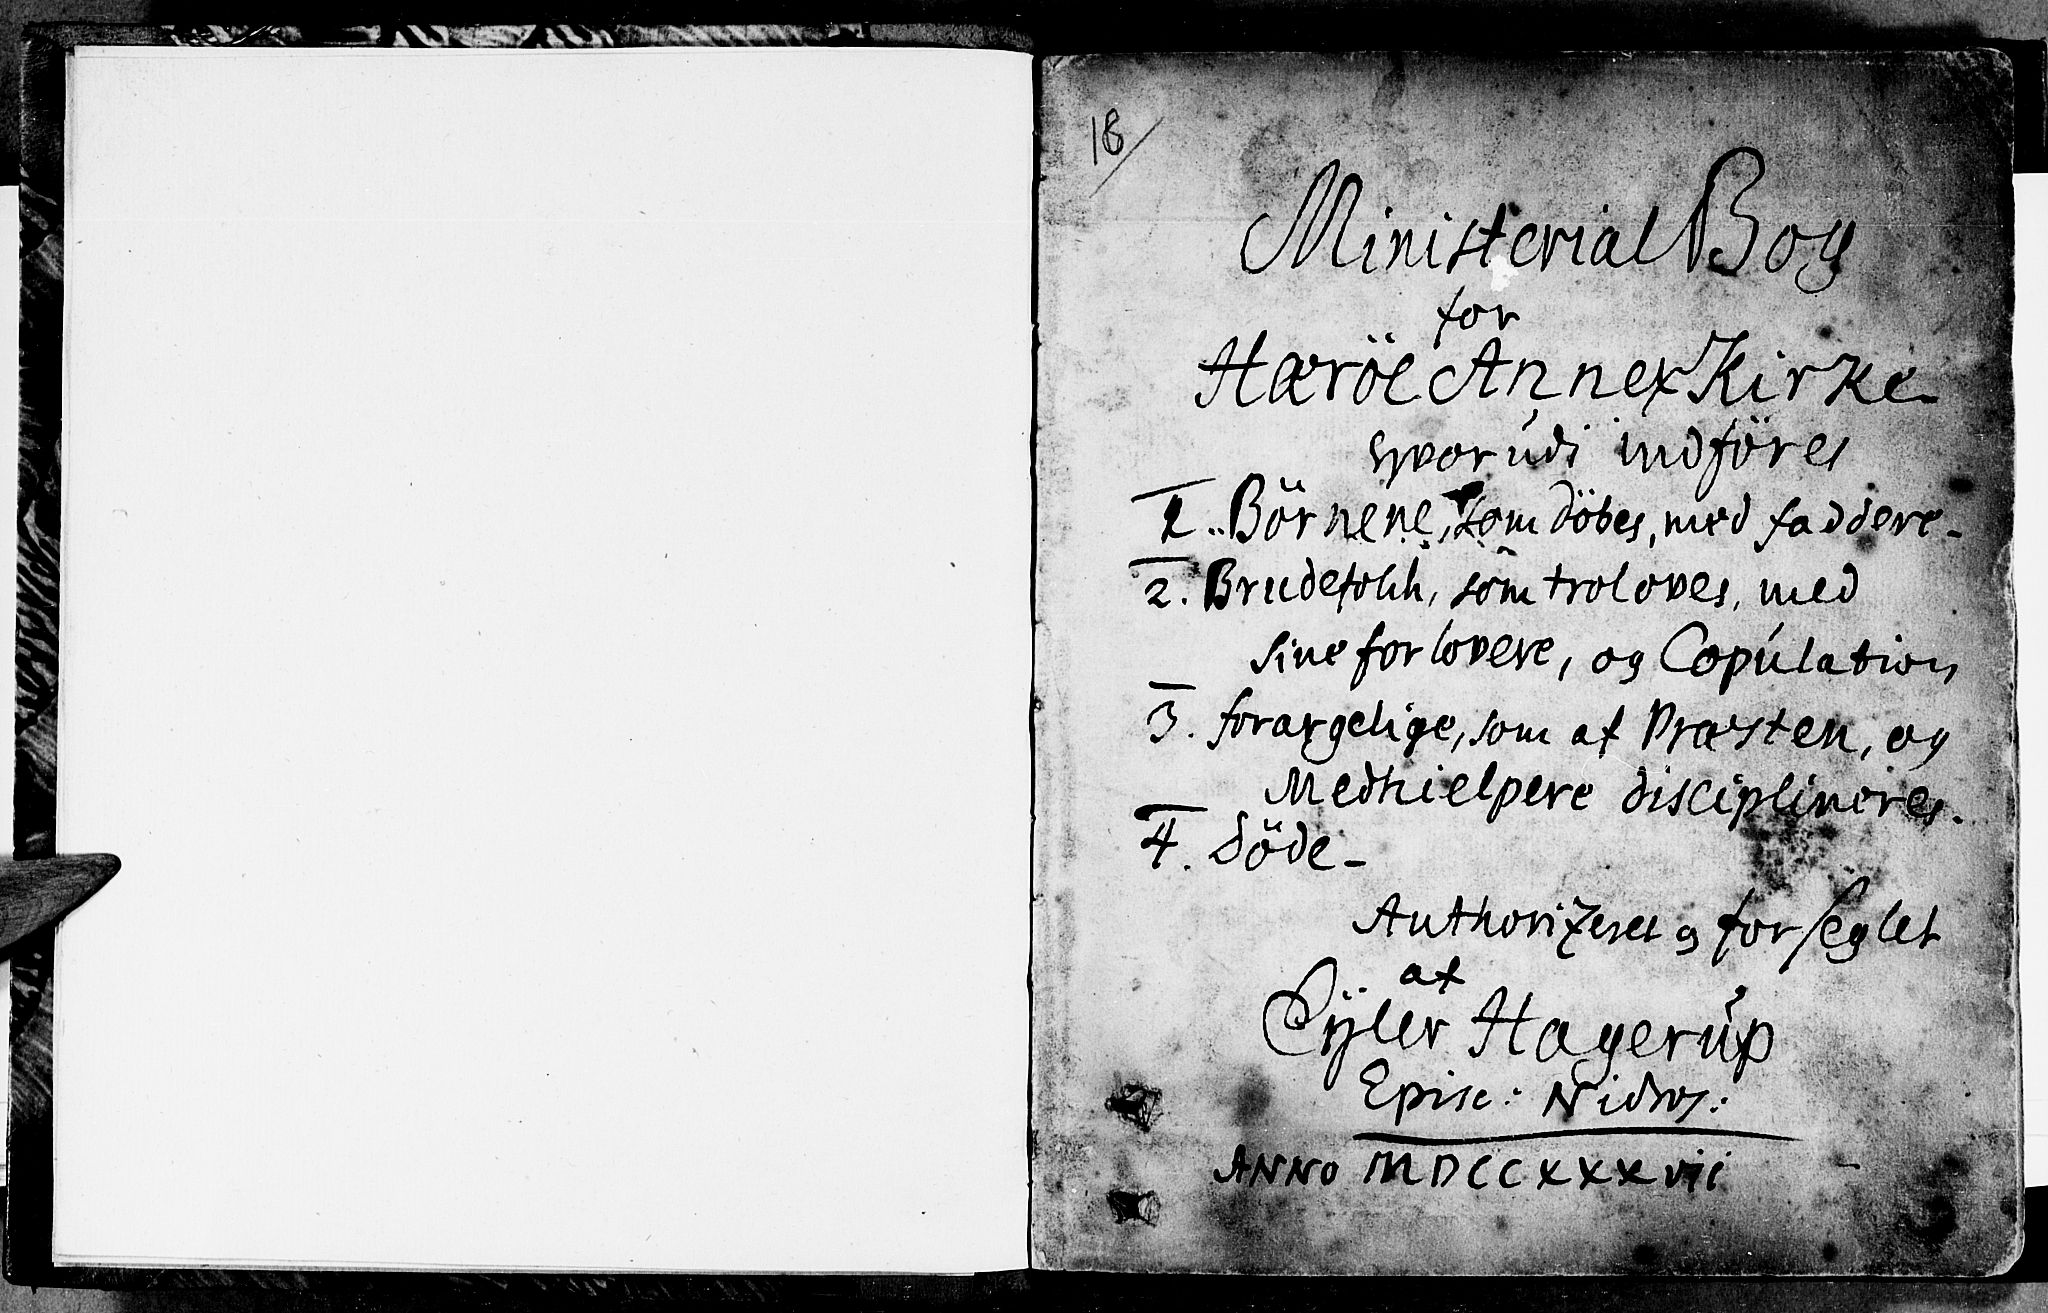 18/
Ministerial Bog
for
Hæröe Annex Kirke
hvorúdi indföres
1. Börnene, som döbes, med faddere
2. Brudefolck, som troloves, med
sine forlovere, og Copúlation
3. forargelige, som af Præsten, og
Medhielpere disciplineres.
4. Döde
Authorizeret og forseglet
af
Eÿler Hagerúp
Episc: Nidros:
ANNO MDCCXXXvii